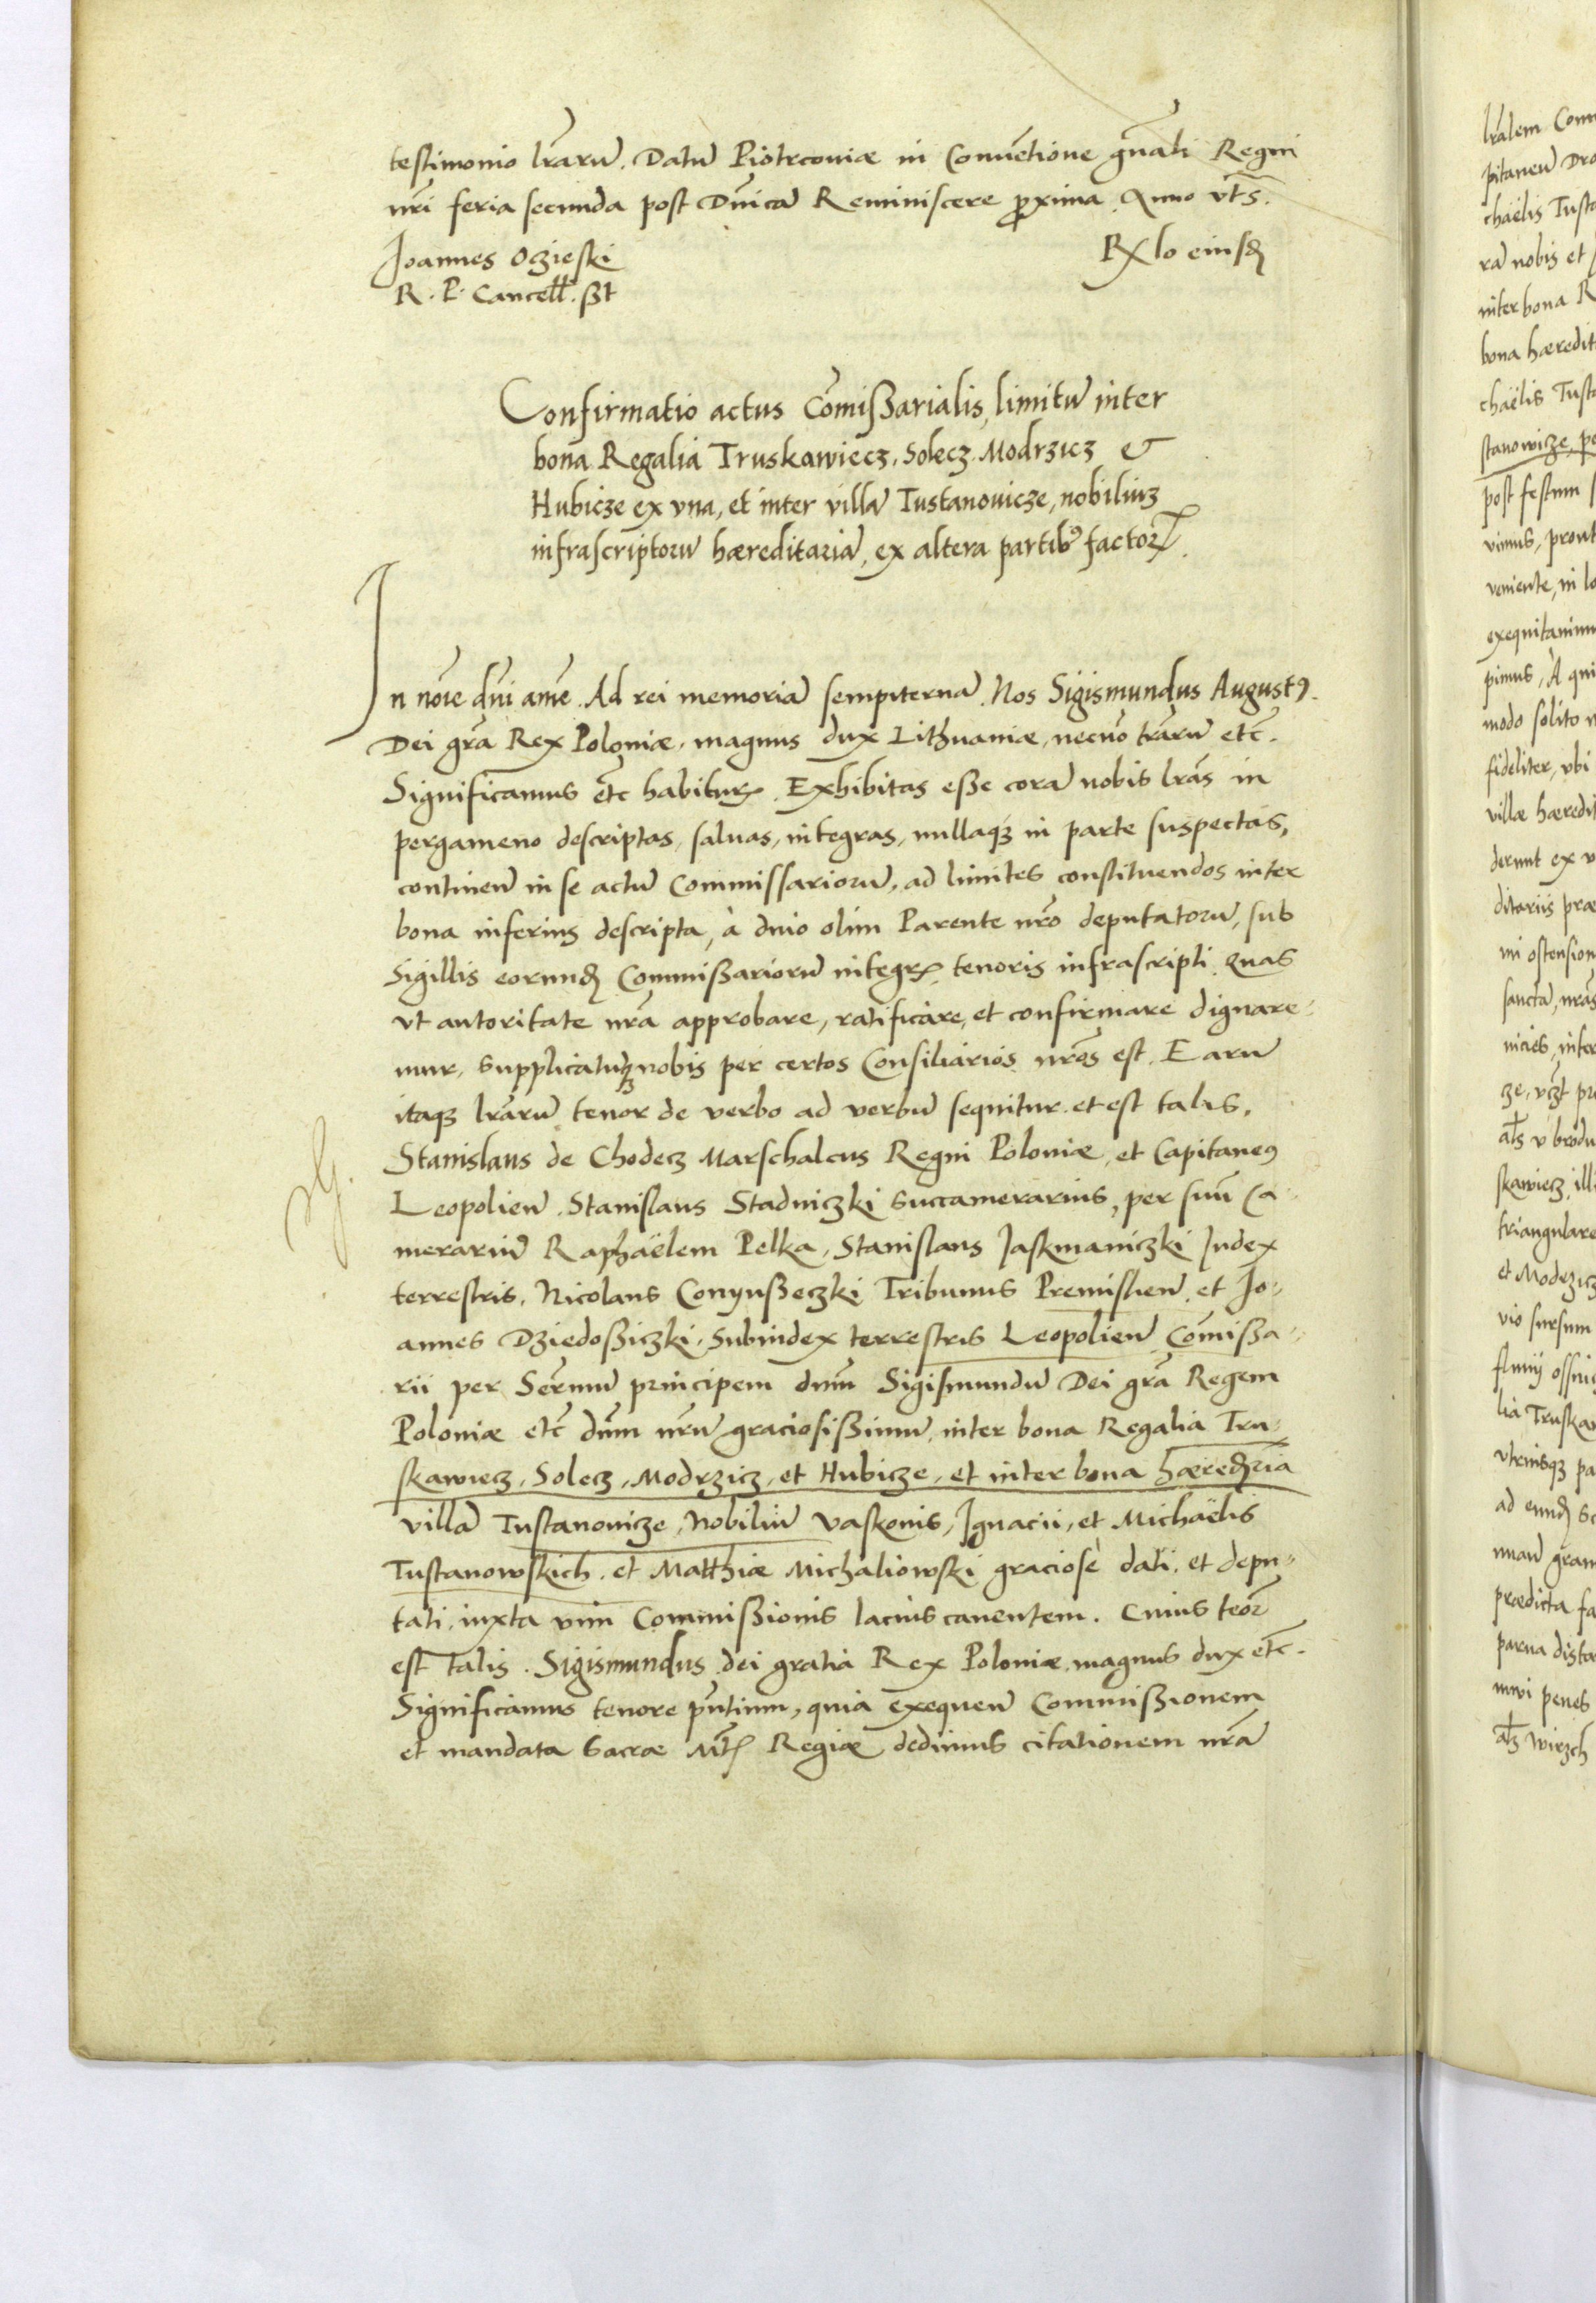 testimonio lr̃arũ. Datũ Piotrcoviæ in Conuẽtione gñali Regni
nr̃i feria secunda post Dñicã Reminiscere p̃xima. Anno vts̃.
Joannes Oczieski
R. P. Cancell. ßt
Rlo eiusd
Confirmatio actus Com̃ißarialis, limitũ inter
bona Regalia Truskawiecz, Solecz Modrzicz &
Hubicze ex vna, et inter villã Tustanouicze, nobiliuz
infrascriptorũ hæreditariã, ex altera partib9 factorꝝ.
In nõie dñi amẽ. Ad rei memoriã sempiternã. Nos Sigismundus August9.
Dei grã Rex Poloniæ, magnus dux Lithuaniæ, necnõ trãrũ etc̃.
Significamus etc̃ habiturꝝ. Exhibitas eße corã nobis lrãs in
pergameno descriptas, saluas, integras, nullaqꝫ in parte suspectas,
continen̄ in se actũ Commissariorũ, ad limites constituendos inter
bona inferius descripta, à diuo olim Parente nrõ deputatorũ, sub
Sigillis eorund Commißariorũ integrꝝ tenoris infrascripti. Quas
vt autoritate nrã approbare, ratificare, et confirmare dignare-
mur, supplicatuꝫ nobis per certos Consiliarios nrõs est. Earũ
itaqꝫ lrãrũ tenor de verbo ad verbũ sequitur et est talis.
Stanislaus de Chodecz Marschalcus Regni Poloniæ, et Capitane9
Leopolien̄. Stanislaus Stadniczki Succamerarius, per suũ Ca-
merariũ Raphaëlem Pelka, Stanislaus Jaskmaniczki Judex
terrestris, Nicolaus Conyußeczki Tribunus Premislien̄. et Jo-
annes Dziedoßiczki, Subiudex terrestris Leopolien̄ Com̃ißa-
rii per Serm̃ũ principem dñm Sigismundũ Dei grã Regem
Poloniæ etc̃ dñm nrũ graciosißimũ, inter bona Regalia Tru-
skawiecz, Solecz, Modrzicz, et Hubicze, et inter bona hæredria
villã Tustanouicze, Nobiliũ Vaskonis, Ignacii, et Michaëlis
Tustanowskich. et Matthiæ Michaliowski graciosè dati, et depu-
tati, iuxta vim Commißionis lacius cauentem. Cuius teõr
est talis. Sigismundus dei gratia Rex Poloniæ, magnus dux etc̃.
Significamus tenore pñtium, quia exequen̄ Commißionem
et mandata Sacræ Mt̃ Regiæ dedimus citationem nrã